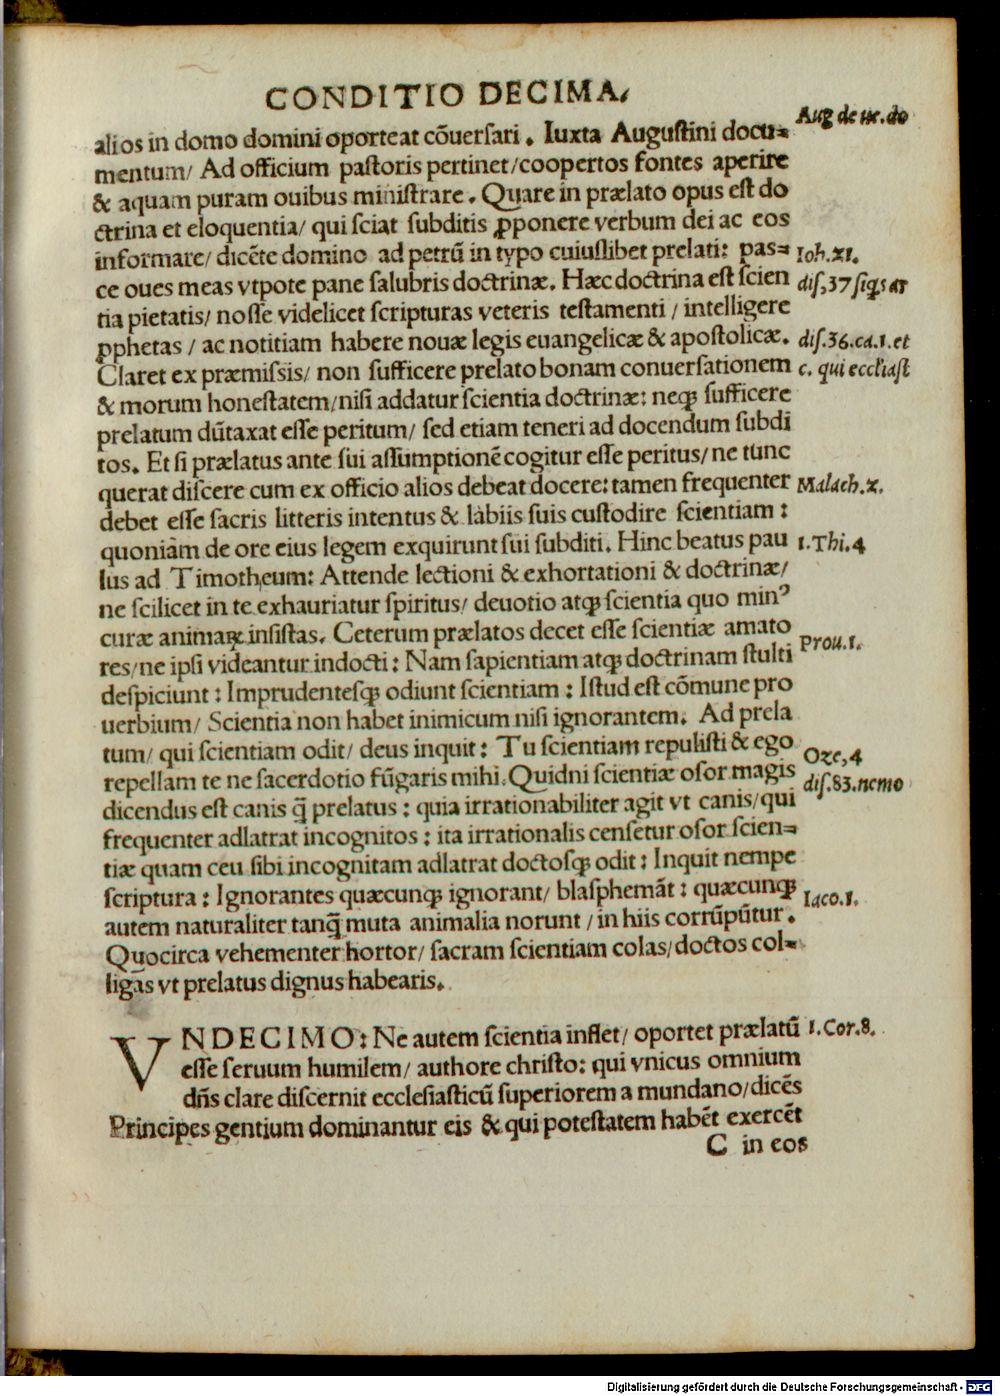 CONDITIO DECIMA,
alios in domo domini oporteat cōuersari. Iuxta Augustini docu=
Aug de ve.do
mentum/ Ad officium pastoris pertinet/coopertos fontes aperire
& aquam puram ouibus ministrare. Quare in prælato opus est do
ctrina et eloquentia/ qui sciat subditis ꝓponere verbum dei ac eos
informare/ dicēte domino ad petrū in typo cuiuslibet prelati: pas=
Ioh.xl.
ce oues meas vtpote pane salubris doctrinæ. Hæc doctrina est scien
dis,37 siqs ar
tia pietatis/ nosse videlicet scripturas veteris testamenti / intelligere
ꝓphetas / ac notitiam habere nouæ legis euangelicæ & apostolicæ.
dis.36.ca.1.et
Claret ex præmissis/ non sufficere prelato bonam conuersationem
c. qui ecclīast
& morum honestatem/nisi addatur scientia doctrinæ: neqꝫ sufficere
prelatum dūtaxat esse peritum/ sed etiam teneri ad docendum subdi
tos. Et si prælatus ante sui assumptionē cogitur esse peritus/ ne tunc
querat discere cum ex officio alios debeat docere: tamen frequenter
Malach.x.
debet esse sacris litteris intentus & labiis suis custodire scientiam:
quoniam de ore eius legem exquirunt sui subditi. Hinc beatus pau
1.Thi.4
lus ad Timotheum: Attende lectioni & exhortationi & doctrinæ/
ne scilicet in te exhauriatur spiritus/ deuotio atqꝫ scientia quo minꝰ
curæ animaꝝ insistas. Ceterum prælatos decet esse scientiæ amato
res/ne ipsi videantur indocti: Nam sapientiam atqꝫ doctrinam stulti
Prou.1.
despiciunt: Imprudentesqꝫ odiunt scientiam: Istud est cōmune pro
uerbium/ Scientia non habet inimicum nisi ignorantem. Ad prela
tum/ qui scientiam odit/ deus inquit: Tu scientiam repulisti & ego
Oze,4
repellam te ne sacerdotio fūgaris mihi. Quidni scientiæ osor magis
dis.83.nemo
dicendus est canis q̄ prelatus: quia irrationabiliter agit vt canis/qui
frequenter adlatrat incognitos: ita irrationalis censetur osor scien=
tiæ quam ceu sibi incognitam adlatrat doctosqꝫ odit: Inquit nempe
scriptura: Ignorantes quæcunqꝫ ignorant/ blasphemāt: quæcunqꝫ
Iaco.1.
autem naturaliter tanq̄ muta animalia norunt / in hiis corrūpūtur.
Quocirca vehementer hortor/ sacram scientiam colas/doctos col=
ligas vt prelatus dignus habearis.
VNDECIMO: Ne autem scientia inflet/ oportet prælatū
1.Cor.8.
esse seruum humilem/ authore christo: qui vnicus omnium
dn̄s clare discernit ecclesiasticū superiorem a mundano/dicēs
Principes gentium dominantur eis & qui potestatem habēt exercēt
C in eos
Digitalisierung gefördert durch die Deutsche Forschungsgemeinschaft - DFG